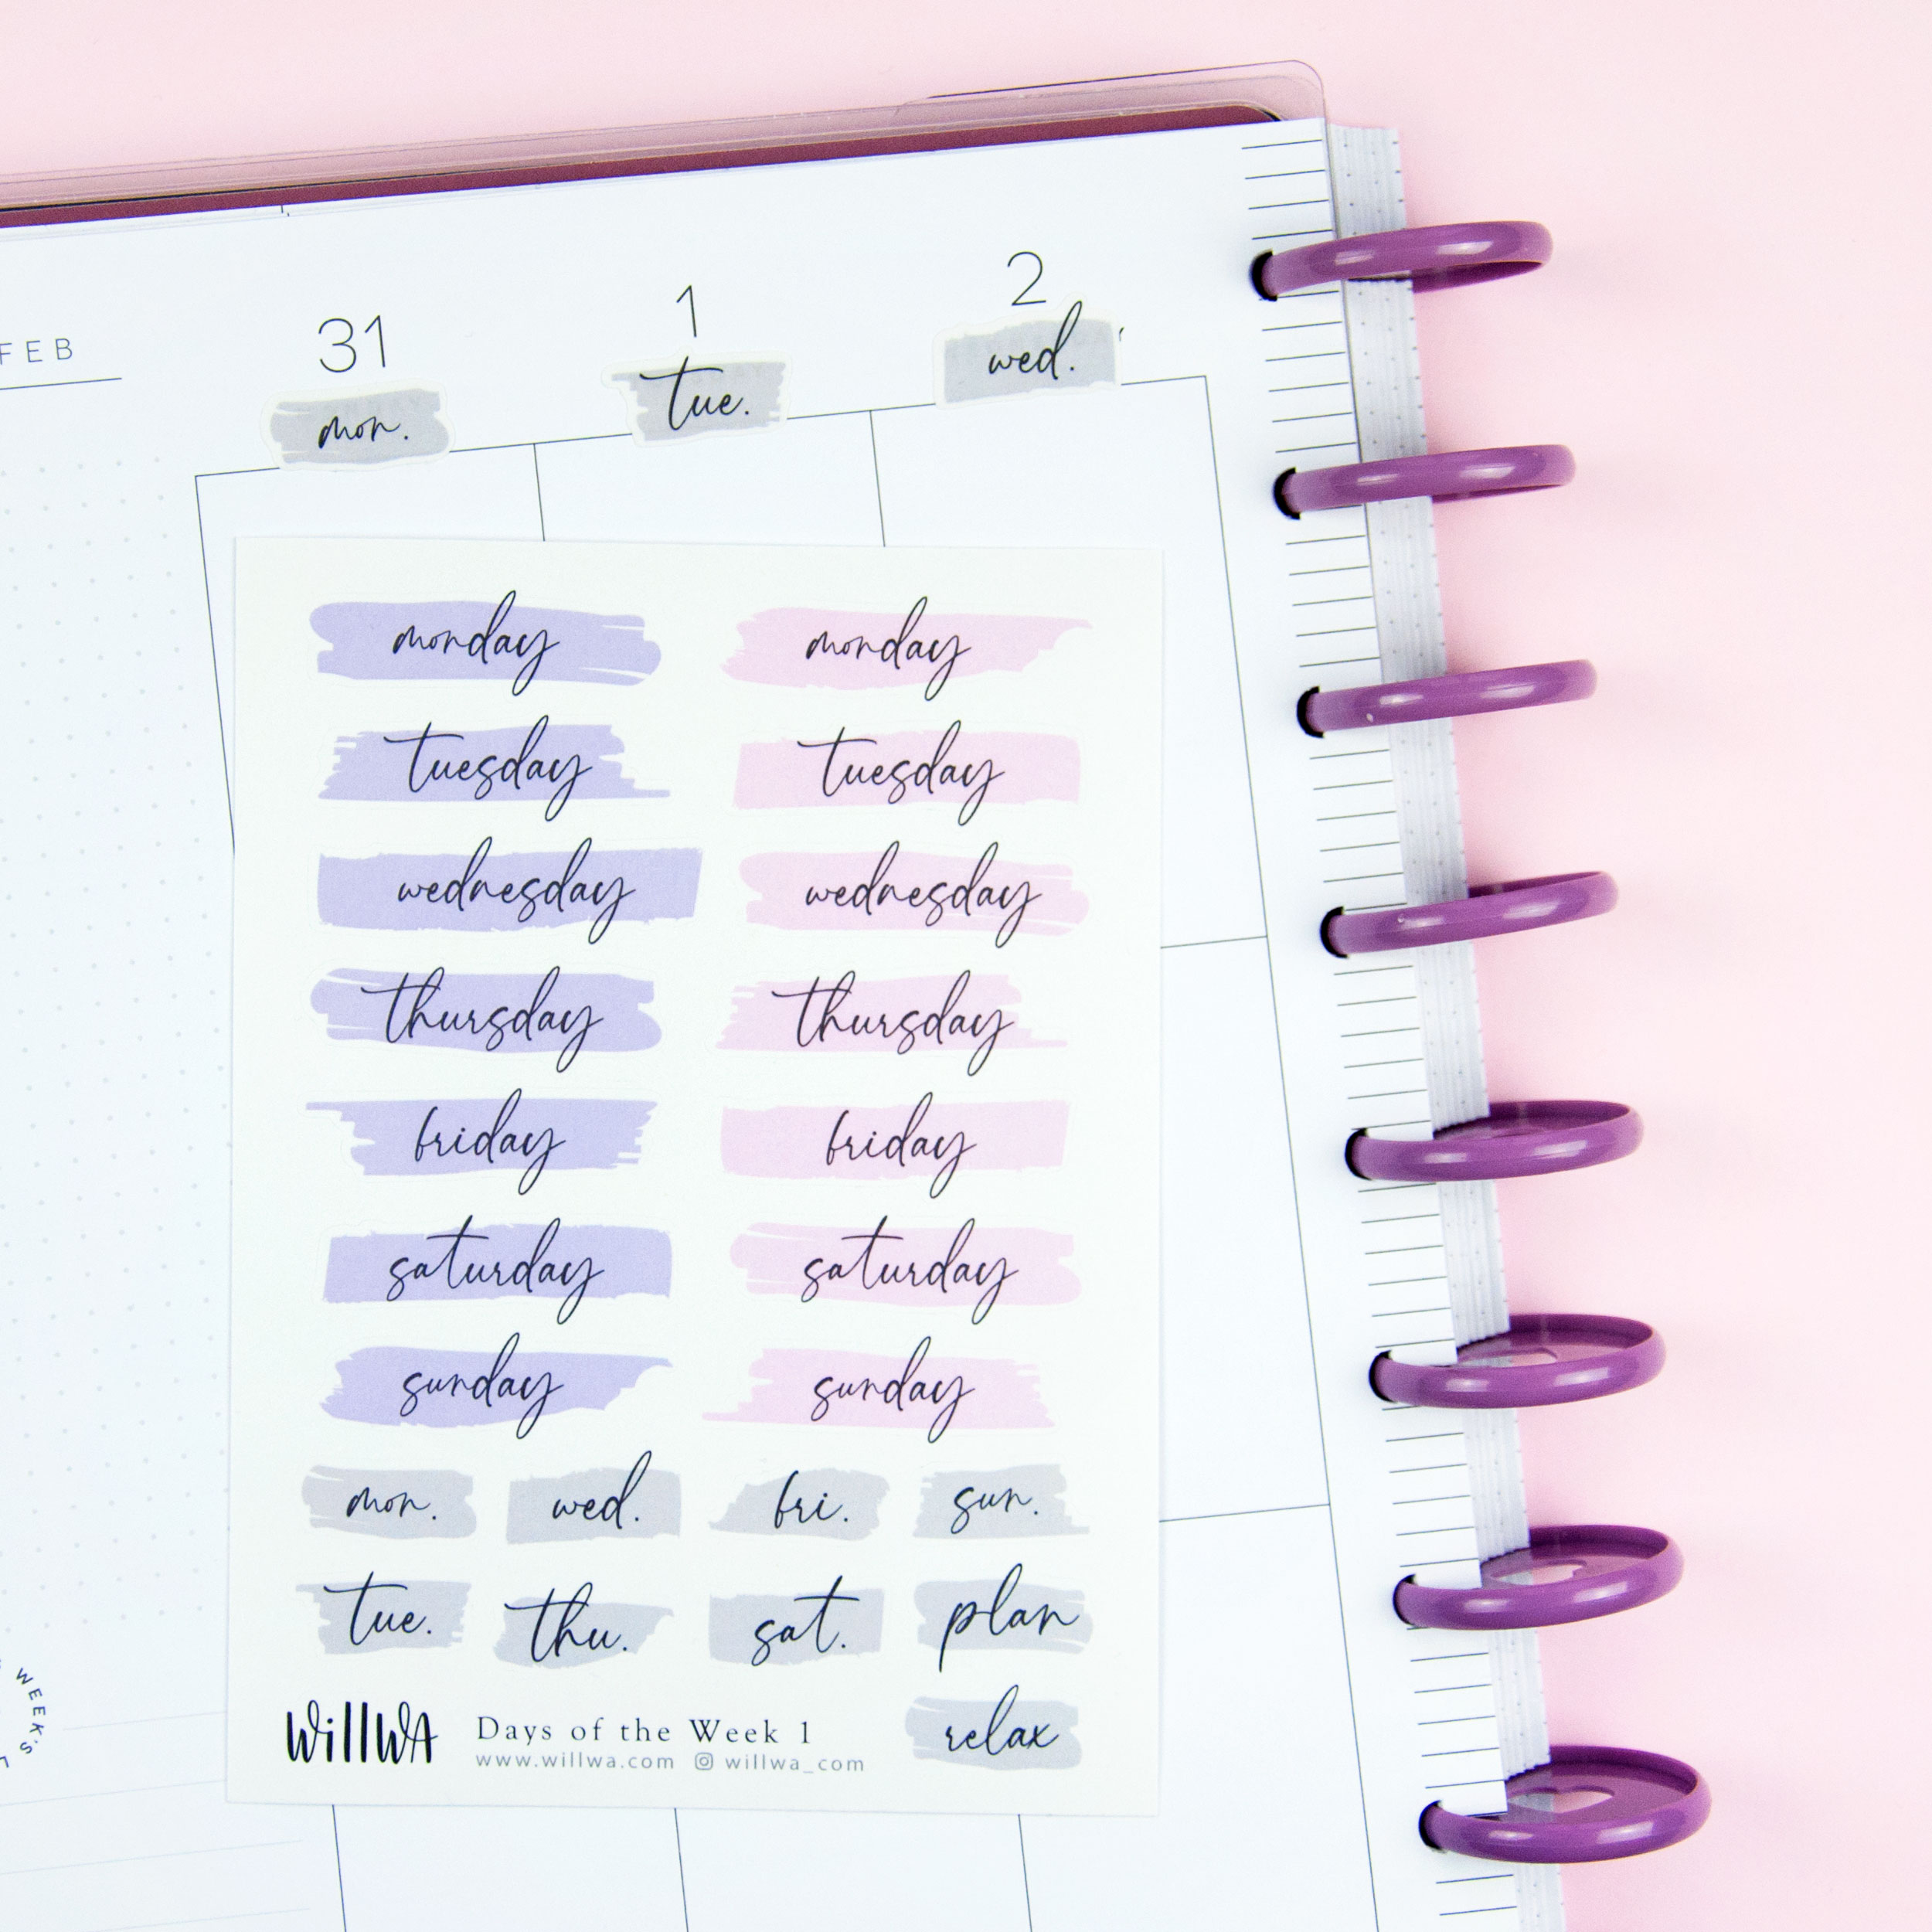 FEB
31 1 2
mon. tue. wed.
monday monday
tuesday tuesday
wednesday wednesday
thursday thursday
friday friday
saturday saturday
sunday sunday
mon. wed. fri. sun.
tue. thu. sat. plan
WillWA Days of the Week 1 relax
www.willwa.com willwa_com
WEEK'S